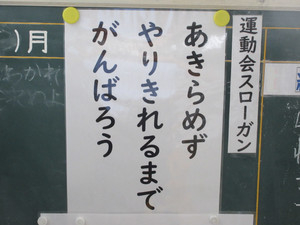 運動会スローガン
あきらめず
やりきれるまで
がんばろう
)月